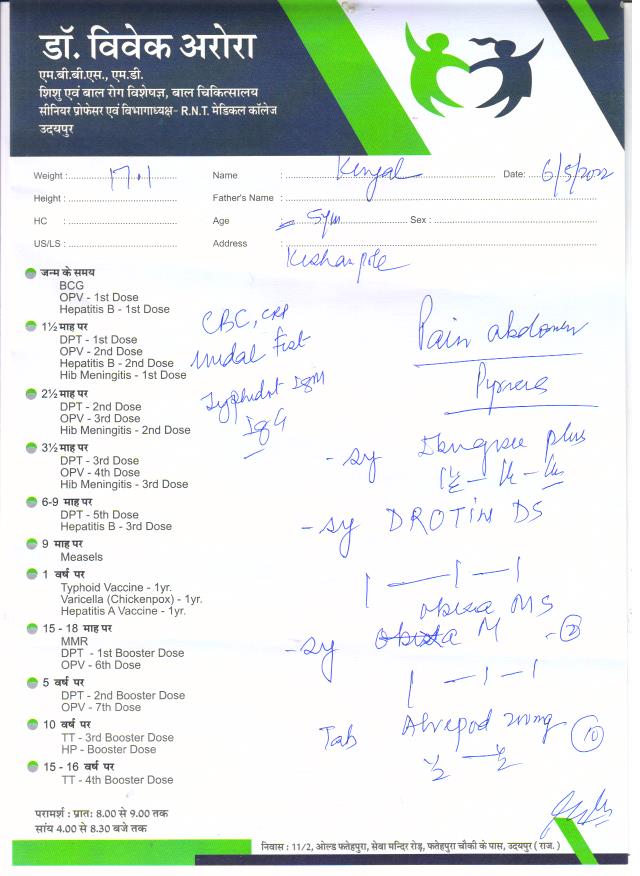 डॉ. विवेक अरोरा
एम.बी.बी.एस., एम.डी.
शिशु एवं बाल रोग विशेषज्ञ, बाल चिकित्सालय
सीनियर प्रोफेसर एवं विभागाध्यक्ष- R.N.T. मेडिकल कॉलेज
उदयपुर
Weight : 17.1 Name : Kinjal Date: 6/5/2022
Height : Father's Name :
HC : Age : 5 Sex :
US/LS : Address :
Kishanpole
जन्म के समय
BCG
OPV - 1st Dose
Hepatitis B - 1st Dose
1½ माह पर
DPT - 1st Dose
OPV - 2nd Dose
Hepatitis B - 2nd Dose
Hib Meningitis - 1st Dose
2½ माह पर
DPT - 2nd Dose
OPV - 3rd Dose
Hib Meningitis - 2nd Dose
3½ माह पर
DPT - 3rd Dose
OPV - 4th Dose
Hib Meningitis - 3rd Dose
6-9 माह पर
DPT - 5th Dose
Hepatitis B - 3rd Dose
9 माह पर
Measels
1 वर्ष पर
Typhoid Vaccine - 1yr.
Varicella (Chickenpox) - 1yr.
Hepatitis A Vaccine - 1yr.
15 - 18 माह पर
MMR
DPT - 1st Booster Dose
OPV - 6th Dose
5 वर्ष पर
DPT - 2nd Booster Dose
OPV - 7th Dose
10 वर्ष पर
TT - 3rd Booster Dose
HP - Booster Dose
15 - 16 वर्ष पर
TT - 4th Booster Dose
CBC, CRP
Widal Test
Typhidot IgM
IgG
Pain abdomen
- sy plus
- sy DROTIN DS
1 — 1 — 1
MS
- sy M - 2
1 - 1 - 1
Tab 200mg 10
½ — ½
परामर्श : प्रात: 8.00 से 9.00 तक
सांय 4.00 से 8.30 बजे तक
निवास : 11/2, ओल्ड फतेहपुरा, सेवा मन्दिर रोड़, फतेहपुरा चौकी के पास, उदयपुर ( राज. )